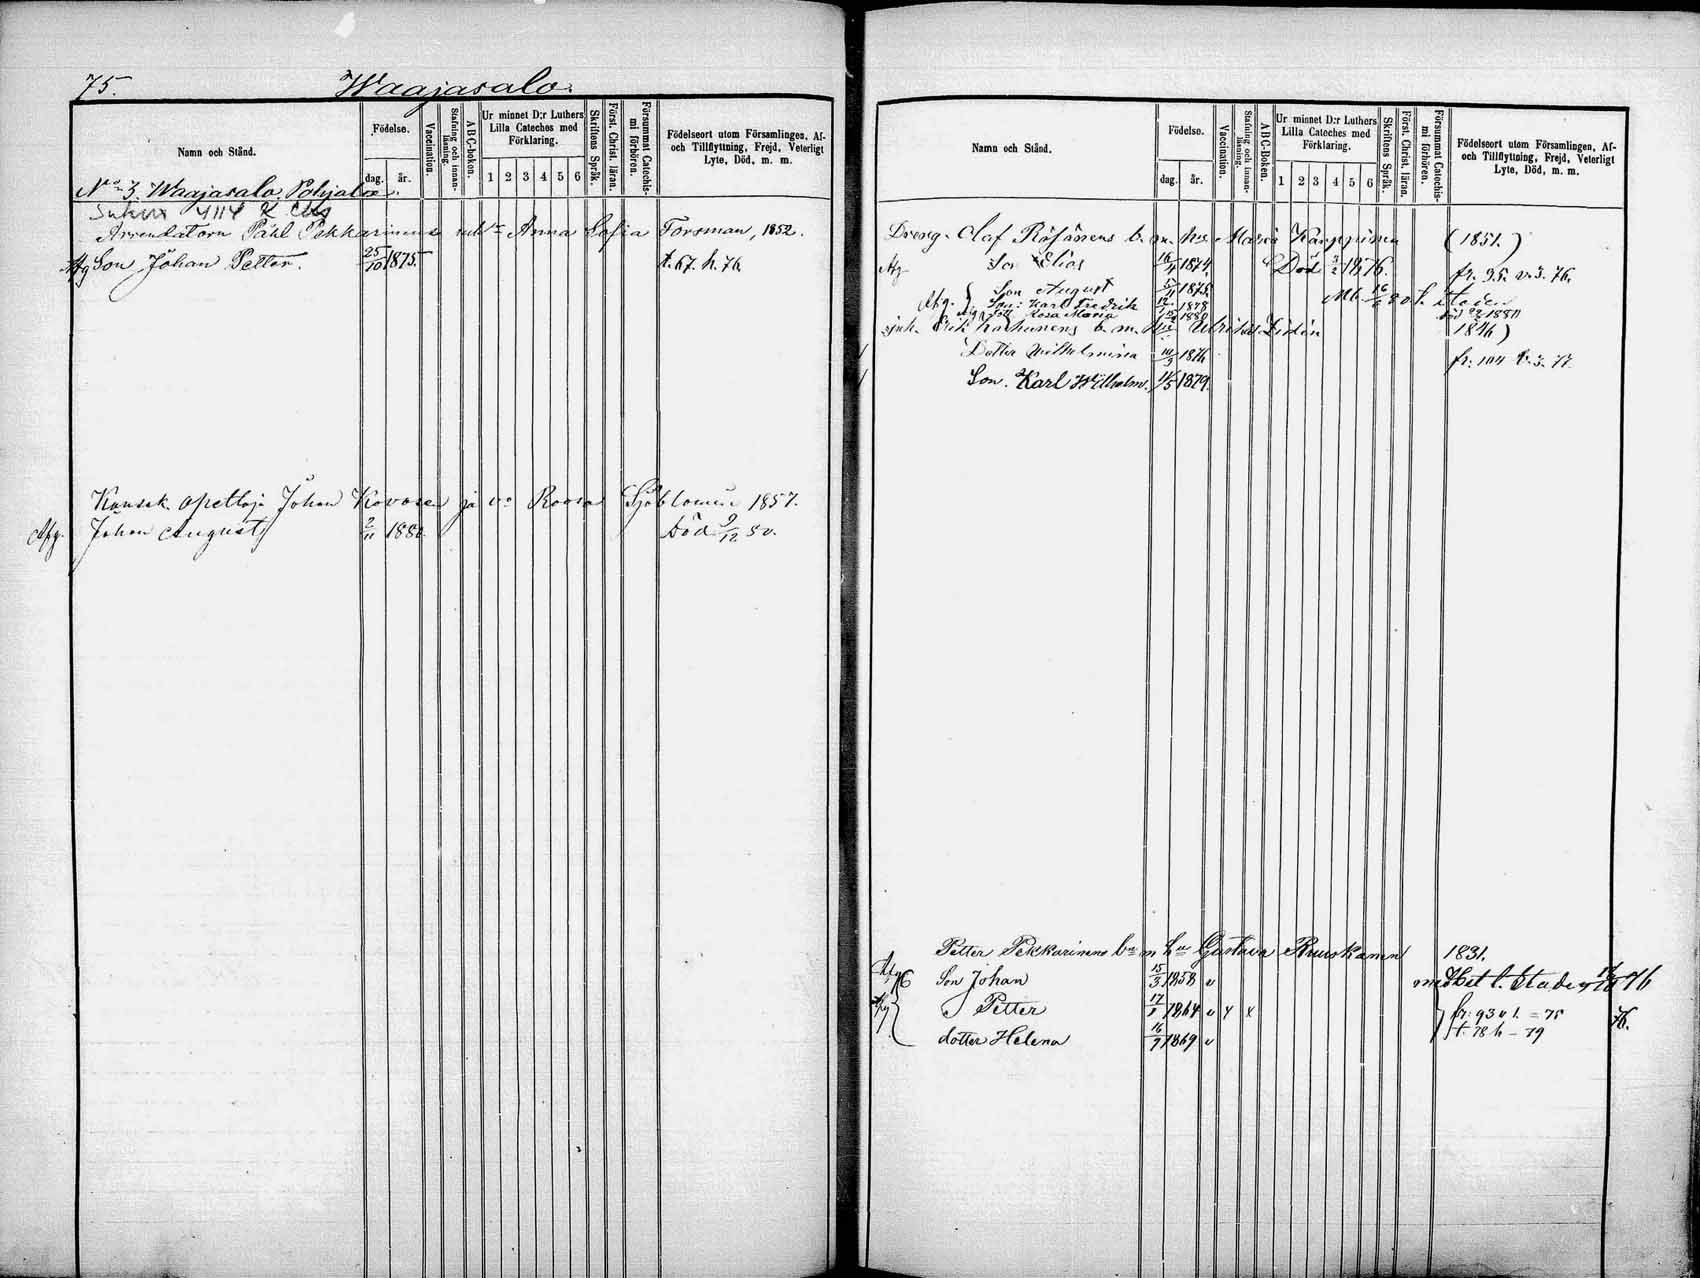 75. Waajasalo.
Namn och Stånd.
Födelse.
dag. år.
Vaccination.
Stafning och innanläsning.
ABC-boken.
Ur minnet D:r Luthers Lilla Cateches med Förklaring.
1 2 3 4 5 6
Skriftens Språk.
Först. Christ. läran.
Försummat Catechismi förhören.
Födelseort utom Församlingen, Af- och Tillflyttning, Frejd, Veterligt Lyte, Död, m. m.
No 3. Waajasalo, Pohjalax.
Arrendatorn Påhl Pekkarinens Anna Sofia Forsman, 1852.
Afg Son Johan Petter. 25/10 1875. t. 67. h. 76.
Kansak. opettaja Johan Kovasen ja Roosa Sjöblomin 1857.
Afg. Johan August 2/11 1880. Död 9/12 80.
Namn och Stånd.
Födelse.
dag. år.
Vaccination.
Stafning och innanläsning.
ABC-Boken.
Ur minnet D:r Luthers Lilla Cateches med Förklaring.
1 2 3 4 5 6
Skriftens Språk.
Först. Christ. läran.
Försummat Catechismi förhören.
Födelseort utom Församlingen, Af- och Tillflyttning, Frejd, Veterligt Lyte, Död, m. m.
Dreng Olaf b. m. h. Maria Karppinen (1851.)
Afg. Son Elias 16/4 1874. Död 3/2 1876. fr. 95. v. 3. 76.
Son August 1875.
Afg. Son: Karl Fredrik 1878 t. staden
Rosa Maria 1880 död 1880
Erik b. m. Ulrika Lidén 1846)
Dotter Wilhelmina 10/3 1876 fr. 104 v. 3. 77.
Son. Karl Wilhelm. 11/5 1879.
Petter Pekkarinens bn m hu Gustava Ruuskanen 1831.
Afg Son Johan 15/3 1858 v Mbet t. Staden 76
Afg Petter 17/1 1864 v x x fr. 93 v l. = 75 76.
dotter Helena 16/7 1869 v t. 78 h - 79